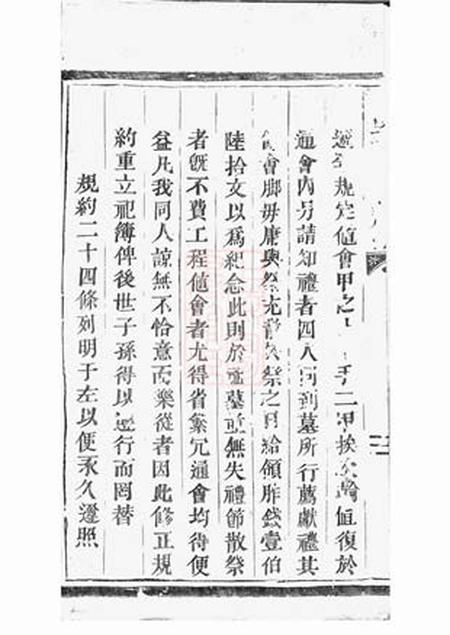 規定值會甲之手二甲挨次輪值復於
通會內另請知禮者四人同到墓所行薦獻禮其
會脚毋庸與祭之日給領胙錢壹伯
陸拾文以為紀念此則於墓並無失禮節散祭
者既不費工程值會者尤得省繁冗通會均得便
益凡我同人諒無不恰意而樂從者因此修正規
約重立祀簿俾後世子孫得以遵行而罔替
規約二十四條列明于左以便永久遵照